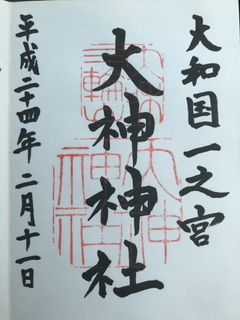 大和国一之宮
大神神社
平成二十四年 二月十一日